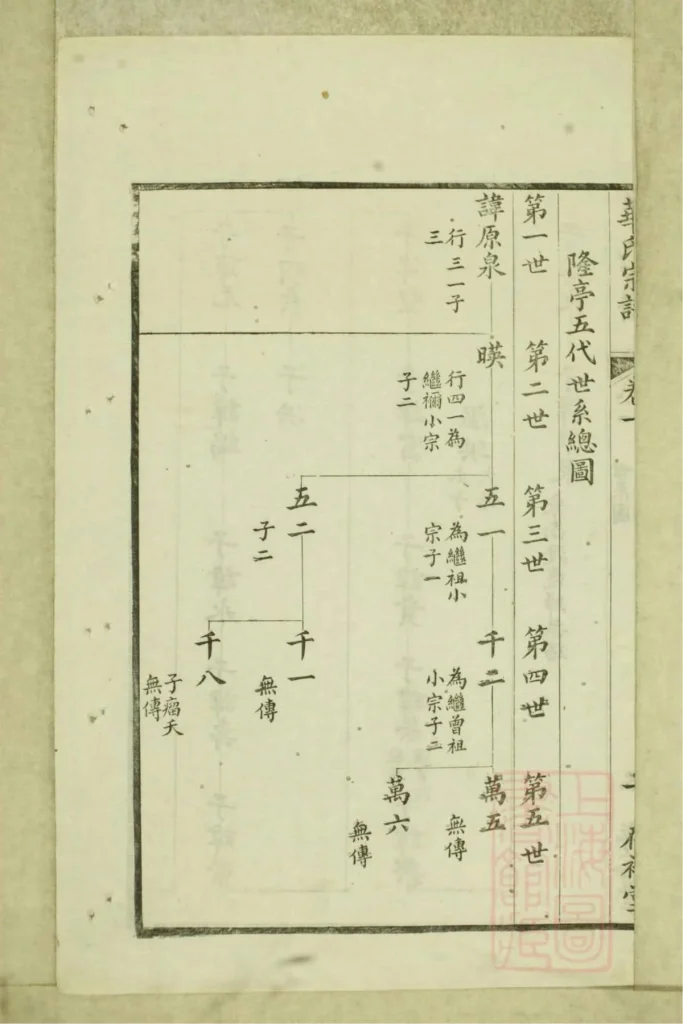 華氏宗譜
卷一
隆亭五代世系總圖
第一世
第二世
第三世
第四世
第五世
諱原泉
行三一子
三
暎
行四一為
繼禰小宗
子二
五一
為繼祖小
宗子一
千二
為繼曾祖
小宗子二
萬五
無傳
萬六
無傳
五二
子二
千一
無傳
千八
子瘤夭
無傳
上海圖